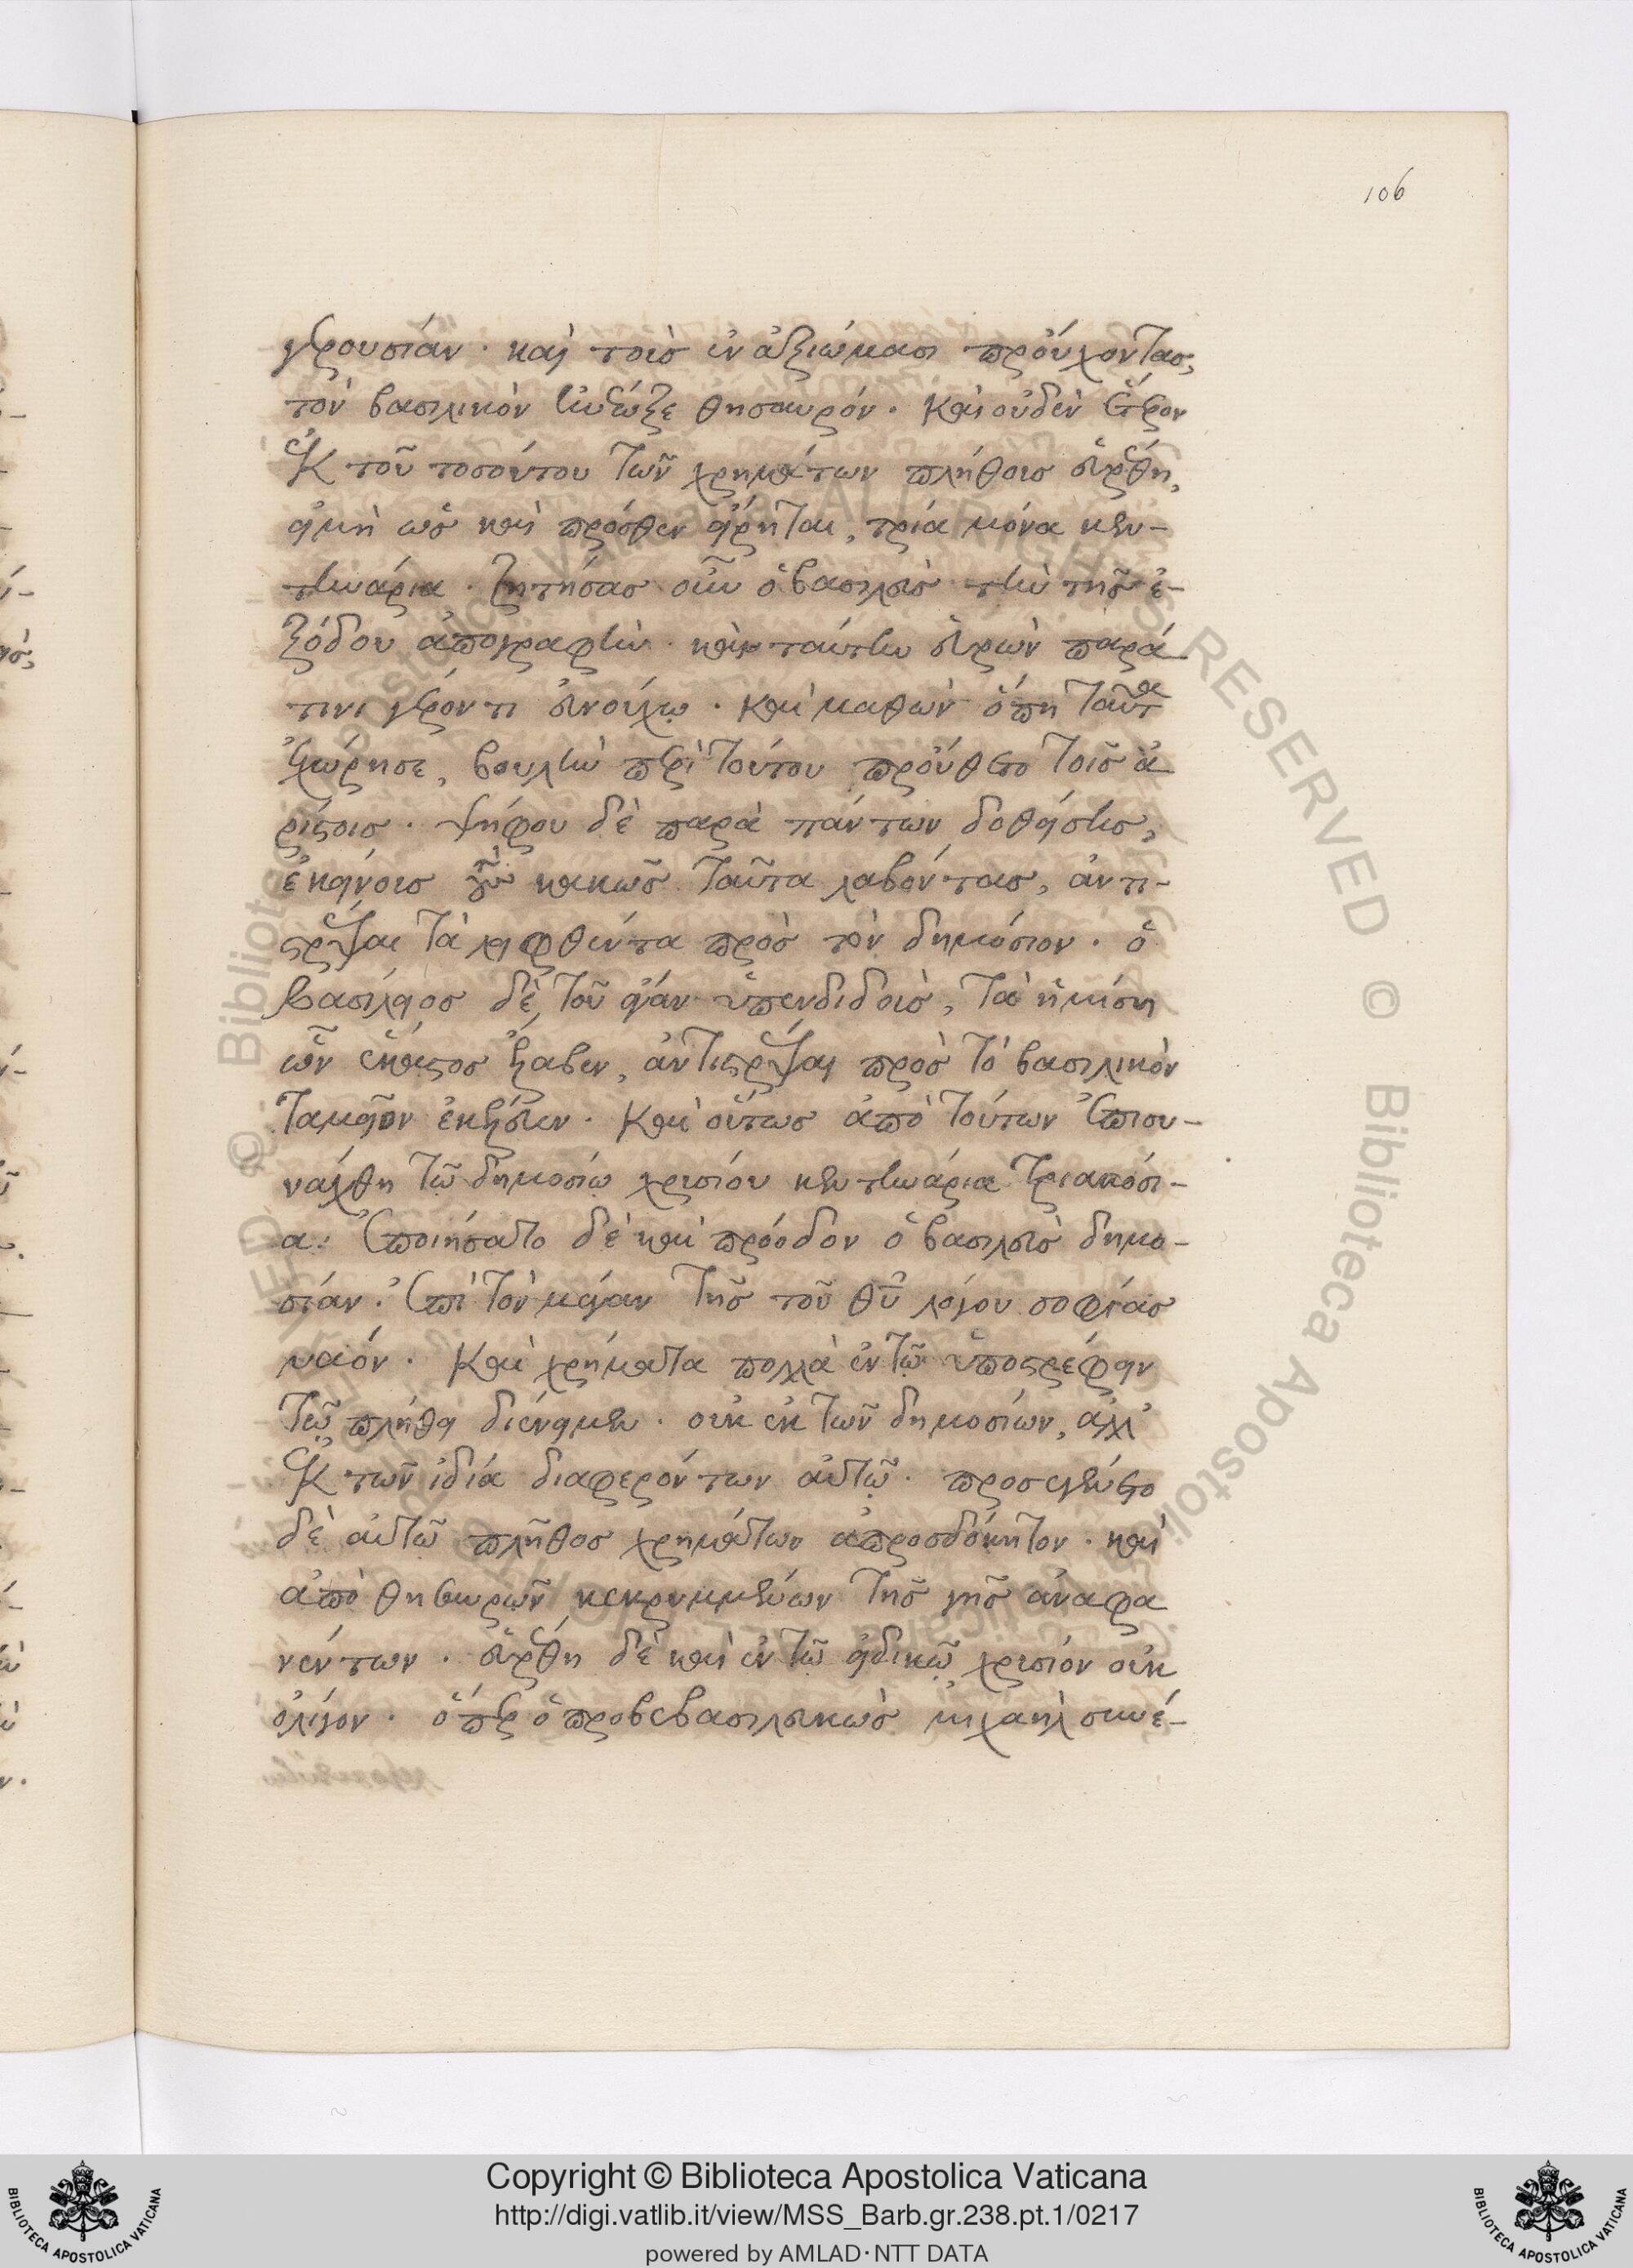 106
γερουσίαν. καὶ τοὺς ἐν ἀξιώμασι προύχοντας,
τὸν βασιλικὸν ἠνέῳξε θησαυρόν. καὶ οὐδὲν ἕτερον
ἐκ τοῦ τοσούτου τῶν χρημάτων πλήθους εὑρέθη,
εἰ μὴ ὡς καὶ πρόσθεν εἴρηται, τρία μόνα κεν-
τηνάρια. ζητήσας οὖν ὁ βασιλεὺς τὴν τῆς ἐ-
ξόδου ἀπογραφὴν. καὶ ταύτην εὑρὼν παρά
τινι γέροντι εὐνούχῳ. καὶ μαθὼν ὅπη ταῦτα
ἐχώρησε, βουλὴν περὶ τούτου προύθετο τοῖς ἀ
ρίστοις. ψήφου δὲ παρὰ πάντων δοθείσης,
ἐκείνους γοῦν κακῶς ταῦτα λαβόντας, ἀντι-
στρέψαι τὰ ληφθέντα πρὸς τὸν δημόσιον. ὁ
βασίλειος δὲ τοῦ εἰάν ὑπενδιδοὺς, τὰ ἡμίση
ὧν ἕκαστος ἔλαβεν, ἀντιστρέψαι πρὸς τὸ βασιλικὸν
ταμεῖον ἐκέλευσεν. καὶ οὕτως ἀπὸ τούτων ἐπισυ-
νάχθη τῷ δημοσίῳ χρυσίου κεντηνάρια τριακόσι-
α: ἐποιήσατο δὲ καὶ πρόοδον ὁ βασιλεὺς δημο-
σίαν. ἐπὶ τὸν μέγαν τῆς τοῦ θῦ λόγου σοφίας
ναόν. καὶ χρήματα πολλὰ ἐν τῷ ὑποστρέφειν
τῷ πλήθει διένειμεν. οὐκ ἐκ τῶν δημοσίων, ἀλλ'
ἐκ τῶν ἰδίᾳ διαφερόντων αὐτῷ. προσεγένετο
δὲ αὐτῷ πλῆθος χρημάτων ἀπροσδόκητον. καὶ
ἀπὸ θησαυρῶν κεκρυμμένων τῆς γῆς ἀναφα
νέντων. εὑρέθη δὲ καὶ ἐν τῷ εἰδικῷ χρυσίον οὐκ
ὀλίγον. ὅπερ ὁ προβεβασιλευκὼς μιχαὴλ συνέ-
Copyright © Biblioteca Apostolica Vaticana
http://digi.vatlib.it/view/MSS_Barb.gr.238.pt.1/0217
powered by AMLAD·NTT DATA
BIBLIOTECA APOSTOLICA VATICANA
BIBLIOTECA APOSTOLICA VATICANA